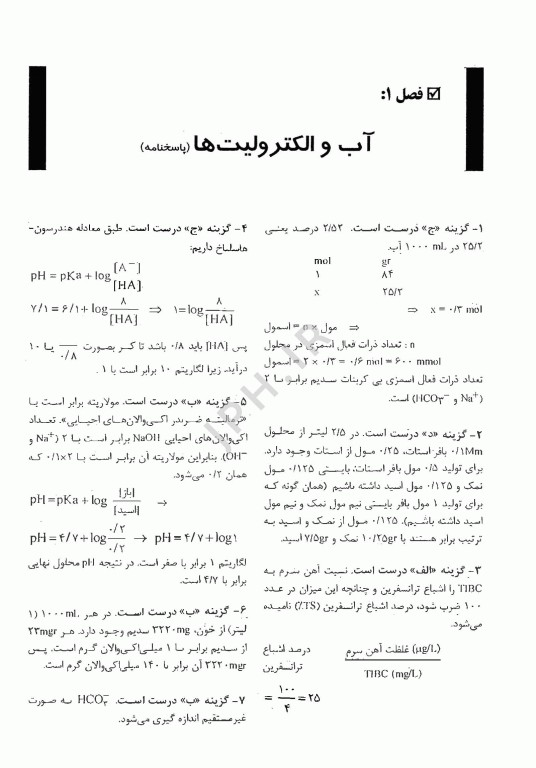 فصل ۱:
آب و الکترولیت‌ها (پاسخنامه)
۱- گزینه «ج» درست است. ۲/۵۲ درصد یعنی
۲۵/۲ در ۱۰۰۰ mL آب.
mol gr
۱ ۸۴
x ۲۵/۲
⇒ x = ۰/۳ mol
⇒ مول × n = اسمول
n : تعداد ذرات فعال اسمزی در محلول
۲ × ۰/۳ = ۰/۶ mol = ۶۰۰ mmol = اسمول
تعداد ذرات فعال اسمزی بی کربنات سدیم برابر با ۲
(Na⁺ و HCO₃⁻) است.
۲- گزینه «د» درست است. در ۲/۵ لیتر از محلول
۰/۱Mm بافر استات، ۰/۲۵ مول از استات وجود دارد.
برای تولید ۰/۵ مول بافر استات، بایستی ۰/۱۲۵ مول
نمک و ۰/۱۲۵ مول اسید داشته باشیم (همان گونه که
برای تولید ۱ مول بافر بایستی نیم مول نمک و نیم مول
اسید داشته باشیم). ۰/۱۲۵ مول از نمک و اسید به
ترتیب برابر هستند با ۱۰/۲۵gr نمک و ۷/۵gr اسید.
۳- گزینه «الف» درست است. نسبت آهن سرم به
TIBC را اشباع ترانسفرین و چنانچه این میزان در عدد
۱۰۰ ضرب شود، درصد اشباع ترانسفرین (TS٪) نامیده
می‌شود.
درصد اشباع غلظت آهن سرم (µg/L)
ترانسفرین TIBC (mg/L)
= ۱۰۰/۴ = ۲۵
۴- گزینه «ج» درست است. طبق معادله هندرسون-
هاسلباخ داریم:
pH = pKa + log [A⁻]/[HA]
۷/۱ = ۶/۱ + log ۸/[HA] ⇒ ۱ = log ۸/[HA]
پس [HA] باید ۰/۸ باشد تا کسر بصورت ۸/۰/۸ یا ۱۰
درآید. زیرا لگاریتم ۱۰ برابر است با ۱.
۵- گزینه «ب» درست است. مولاریته برابر است با
«نرمالیته ضربدر اکی‌والان‌های احیایی». تعداد
اکی‌والان‌های احیایی NaOH برابر است با ۲ (Na⁺ و
OH⁻). بنابراین مولاریته آن برابر است با ۰/۱×۲ که
همان ۰/۲ می‌شود.
pH = pKa + log [باز]/[اسید] →
pH = ۴/۷ + log ۰/۲/۰/۲ → pH = ۴/۷ + log۱
لگاریتم ۱ برابر با صفر است. در نتیجه pH محلول نهایی
برابر با ۴/۷ است.
۶- گزینه «ب» درست است. در هر ۱۰۰۰mL (۱
لیتر) از خون، ۳۲۲۰mg سدیم وجود دارد. هر ۲۳mgr
از سدیم برابر با ۱ میلی‌اکی‌والان گرم است. پس
۳۲۲۰mgr آن برابر با ۱۴۰ میلی‌اکی‌والان گرم است.
۷- گزینه «ب» درست است. HCO₃⁻ به صورت
غیرمستقیم اندازه گیری می‌شود.